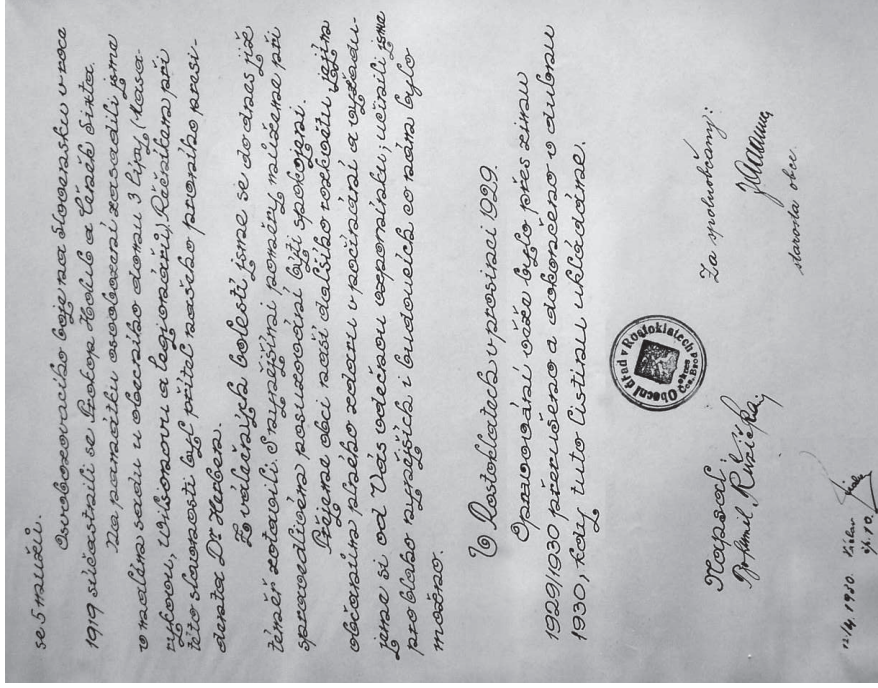 se 5 muži.
Osvobozovacího boje na Slovensku v roce
1919 súčastnili se Prokop Holub a Čeněk Šixta.
Na památku osvobození zasadili jsme
v malém sadu u obecního domu 3 lípy, (Masa-
rykovu, Wilsonovu a legionářů). Řečníkem při
této slavnosti byl přítel našeho prvního presi-
denta Dr Herben.
Z válečných bolestí jsme se do dnes již
téměř zotavili. S nynějšími poměry můžeme při
spravedlivém posuzování býti spokojeni.
Přejeme obci naší dalšího rozkvětu jejím
občanům plného zdaru v počínání a vyžadu-
jeme si od Vás vděčnou vzpomínku; učinili jsme
pro blaho nynějších i budoucích co nám bylo
možno.
V Rostoklatech v prosinci 1929.
Opravování věže bylo přes zimu
1929/1930 přerušeno a dokončeno v dubnu
1930, kdy tuto listinu ukládáme.
Obecní úřad v Rostoklatech
okres Čes. Brod
Napsal:
Bohumil Růžička
Za spoluobčany:
starosta obce.
12/4 1930.
čp. 10.